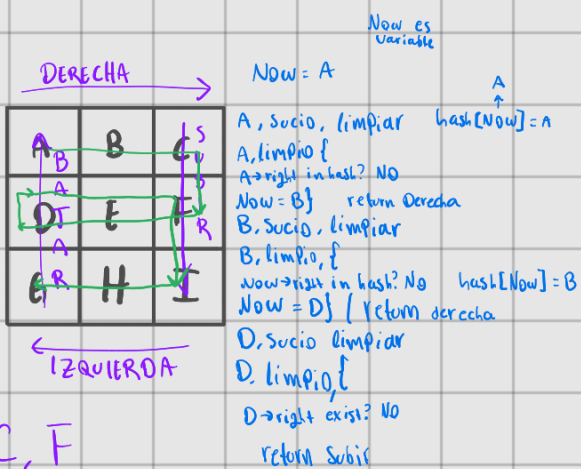 Now es
variable
DERECHA
Now = A
A
A, sucio, limpiar
hash[Now] = A
A, limpio {
A→right in hash? NO
Now = B} return Derecha
B, sucio, limpiar
B, limpio, {
Now→right in hash? NO
hash[Now] = B
Now = D} { return derecha
D, sucio limpiar
D, limpio, {
D→right exist? NO
return Subir
A B C
D E F
G H I
BAJAR
SUBIR
IZQUIERDA
C, F